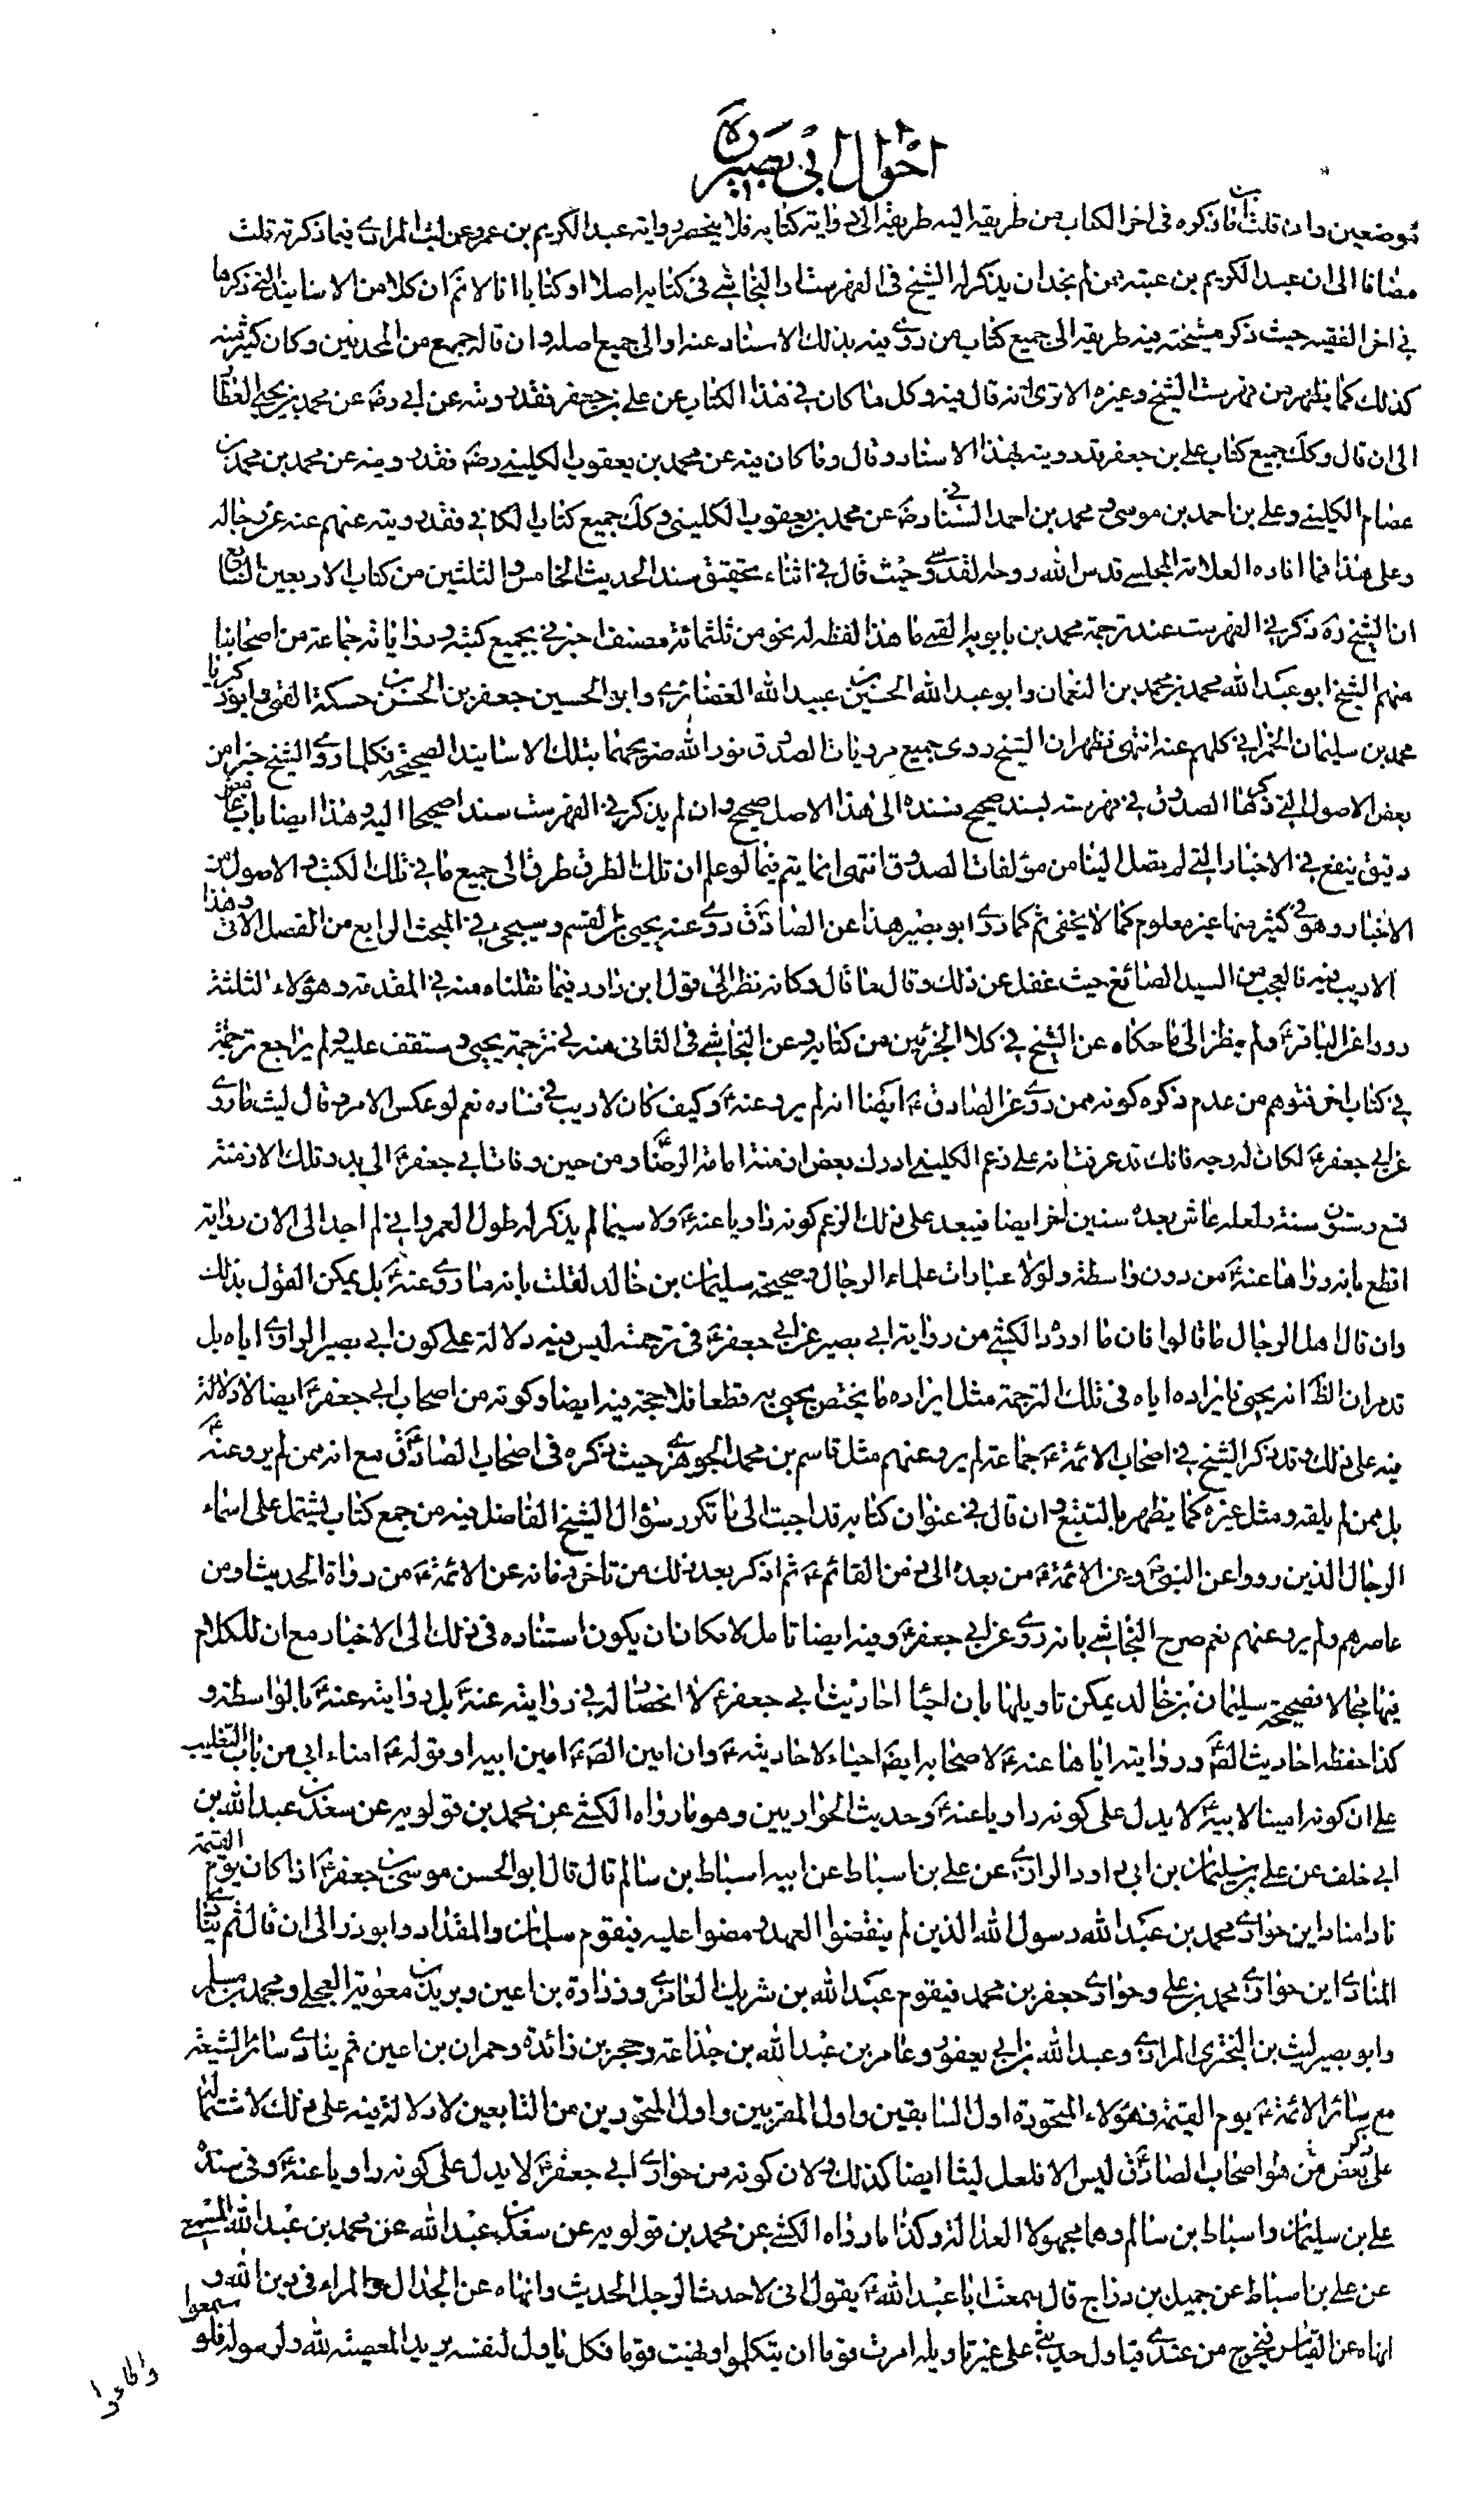 احوال ابی بصیر
موضعین وان قلت ان ما ذکره فی اخر الکتاب من طریقه الیه طریقه الی روایة کتابه فلا ینحصر روایة عبد الکریم بن عمرو عن لیث المرادی فیما ذکرته قلت
مضافا الی ان عبد الکریم بن عتبة ممن لم نجد ان یذکر له الشیخ فی الفهرست والنجاشی فی کتابه اصلا او کتابا انا لا نم ان کلا من الاسانید التی ذکرها
فی اخر الفقیه حیث ذکر مشیخته فیه طریقه الی جمیع کتاب من روی فیه بذلک الاسناد عنه او الی جمیع اصله وان قاله جمع من المحدثین وکان کثیر منه
کذلک کما یظهر من فهرست الشیخ وغیره الا تری انه قال فیه وکل ما کان فی هذا الکتاب عن علی بن جعفر فقد رویته عن ابی رض عن محمد بن یحیی العطار
الی ان قال وکک جمیع کتاب علی بن جعفر قد رویته بهذا الاسناد وقال وما کان فیه عن محمد بن یعقوب الکلینی رض فقد رویته عن محمد بن محمد بن
عصام الکلینی وعلی بن احمد بن موسی و محمد بن احمد السنانی رض عن محمد بن یعقوب الکلینی وکک جمیع کتاب الکافی فقد رویته عنهم عنه عن رجاله
وعلی هذا فما افاده العلامة المجلسی قدس الله روحه القدسی حیث قال فی اثناء تحقیق سند الحدیث الخامس والثلثین من کتاب الاربعین السابع
ان الشیخ ره ذکر فی الفهرست عند ترجمة محمد بن بابویه القمی ما هذا لفظه له نحو من ثلثمائة مصنف اخبرنی بجمیع کتبه وروایاته جماعة من اصحابنا
منهم الشیخ ابو عبد الله محمد بن محمد بن النعمان وابو عبد الله الحسین بن عبید الله الغضائری وابو الحسین جعفر بن الحسن بن حسکة القمی وابو زکریا
محمد بن سلیمان الحمرانی کلهم عنه انتهی فظهر ان الشیخ روی جمیع مرویات الصدوق نور الله ضریحهما بتلک الاسانید الصحیحة فکلما روی الشیخ خبرا من
بعض الاصول التی ذکرها الصدوق فی فهرسته بسند صحیح فسنده الی هذا الاصل صحیح وان لم یذکر فی الفهرست سندا صحیحا الیه وهذا ایضا باب غامض
دقیق ینفع فی الاخبار التی لم یصل الینا من مؤلفات الصدوق انتهی انما یتم فیما لو علم ان تلک الطرق طرق الی جمیع ما فی تلک الکتب والاصول من
الاخبار وهو فی کثیر منها غیر معلوم کما لا یخفی ثم کما روی ابو بصیر هذا عن الصادق ع روی عنه یحیی بن القسم وسیجیء فی المبحث الرابع من الفصل الاتی وهذا
لا ریب فیه فالعجب من السید الصائغ حیث غفل عن ذلک وقال ما قال وکانه نظر الی قول ابن داود فیما نقلناه منه فی المقدمة وهؤلاء الثلثة
رووا عن الباقر ع ولم ینظر الی ما حکاه عن الشیخ فی کلا الجزئین من کتابه وعن النجاشی فی الثانی منه فی ترجمة یحیی وستقف علیه ولم یراجع ترجمة
فی کتاب اخر فتوهم من عدم ذکره کونه ممن روی عن الصادق ع ایضا انه لم یرو عنه ع وکیف کان لا ریب فی فساده نعم لو عکس الامر وقال لیث ما روی
عن ابی جعفر ع لکان له وجه فانک قد عرفت انه علی زعم الکلینی ادرک بعض ازمنة امامة الرضا ع ومن حین وفات ابی جعفر ع الی بدو تلک الازمنة
تسع وستون سنة ولعله عاش بعده سنین اخر ایضا فیبعد علی ذلک الزعم کونه راویا عنه ع ولا سیما لم یذکر له طول العمر وانی لم اجد الی الان روایة
اقطع بانه رواها عنه ع من دون واسطة ولولا عبارات علماء الرجال وصحیحة سلیمان بن خالد لقلت بانه ما روی عنه ع بل یمکن القول بذلک
وان قال اهل الرجال ما قالوا فان ما اورد الکشی من روایة ابی بصیر عن ابی جعفر ع فی ترجمته لیس فیه دلالة علی کون ابی بصیر الراوی ایاه بل
قد مر ان الظ انه یحیی فایراده ایاه فی تلک الترجمة مثل ایراده ما یختص بیحیی به قطعا فلا حجة فیه ایضا وکونه من اصحاب ابی جعفر ع ایضا لا دلالة
فیه علی ذلک وقد ذکر الشیخ فی اصحاب الائمة ع جماعة لم یرو عنهم مثل قاسم بن محمد الجوهری حیث ذکره فی اصحاب الصادق ع مع انه ممن لم یرو عنه ع
بل ممن لم یلقه ومثل غیره کما یظهر بالتتبع وان قال فی عنوان کتابه قد اجبت الی ما تکرر سؤال الشیخ الفاضل فیه من جمع کتاب یشتمل علی اسماء
الرجال الذین رووا عن النبی ص وعن الائمة ع من بعده الی زمن القائم ع ثم اذکر بعد ذلک من تاخر زمانه عن الائمة ع من رواة الحدیث او من
عاصرهم ولم یرو عنهم نعم صرح النجاشی بانه روی عن ابی جعفر ع وفیه ایضا تامل لامکان ان یکون استناده فی ذلک الی الاخبار مع ان للکلام
فیها مجالا فصحیحة سلیمان بن خالد یمکن تاویلها بان احیاء احادیث ابی جعفر ع لا انحصار له فی روایته عنه ع بل روایته عنه ع بالواسطة و
کذا حفظه احادیث الص ع وروایته ایاها عنه ع لاصحابه ایضا احیاء لاحادیثه ع وان امین الص ع امین ابیه او قوله ع امناء ابی من باب التغلیب
علی ان کونه امینا لابیه ع لا یدل علی کونه راویا عنه ع وحدیث الحواریین وهو ما رواه الکشی عن محمد بن قولویه عن سعد بن عبد الله بن
ابی خلف عن علی بن سلیمان بن ابی داود الرازی عن علی بن اسباط عن ابیه اسباط بن سالم قال قال ابو الحسن موسی بن جعفر ع اذا کان یوم القیمة
نادا مناد این حواری محمد بن عبد الله رسول الله الذین لم ینقضوا العهد ومضوا علیه فیقوم سلمان والمقداد وابوذر الی ان قال ثم ینادی
المنادی این حواری محمد بن علی وحواری جعفر بن محمد فیقوم عبد الله بن شریک العامری وزرارة بن اعین وبرید بن معویة العجلی ومحمد بن مسلم
وابو بصیر لیث بن البختری المرادی وعبد الله بن ابی یعفور وعامر بن عبد الله بن جذاعة وحجر بن زائدة وحمران بن اعین ثم ینادی سائر الشیعة
مع سائر الائمة ع یوم القیمة فهؤلاء المتحورة اول السابقین واول المقربین واول المتحورین من التابعین لا دلالة فیه علی ذلک لاشتماله
علی ذکر بعض من هو اصحاب الصادق ع لیس الا فلعل لیثا ایضا کذلک ولان کونه من حواری ابی جعفر ع لا یدل علی کونه راویا عنه ع وفی سنده
علی بن سلیمان واسباط بن سالم وهما مجهولا العدالة وکذا ما رواه الکشی عن محمد بن قولویه عن سعد بن عبد الله عن محمد بن عبد الله المسمعی
عن علی بن اسباط عن جمیل بن دراج قال سمعت ابا عبد الله ع یقول انی لاحدث الرجل الحدیث وانهاه عن الجدال والمراء فی دین الله و
انهاه عن القیاس فیخرج من عندی فیتاول حدیثی علی غیر تاویله امرت قوما ان یتکلموا ونهیت قوما فکل یاول لنفسه یرید المعصیة لله ولرسوله فلو سمعوا
واطاعوا